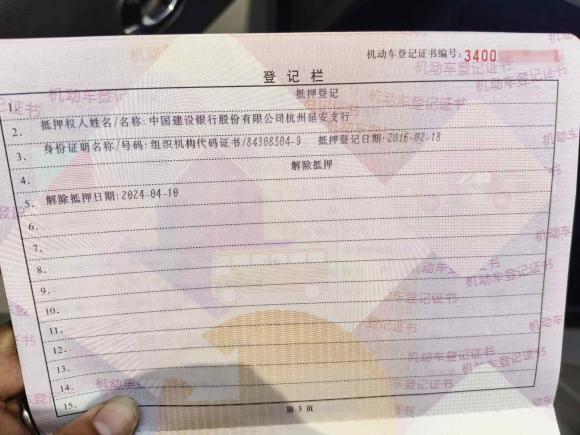 机动车登记证书编号: 3400
登记栏
1. 抵押登记
2. 抵押权人姓名/名称: 中国建设银行股份有限公司杭州延安支行
3. 身份证明名称/号码: 组织机构代码证书/84308504-9 抵押登记日期: 2016-02-18
4. 解除抵押
5. 解除抵押日期: 2024-04-10
6.
7.
8.
9.
10.
11.
12.
13.
14.
15.
第 3 页